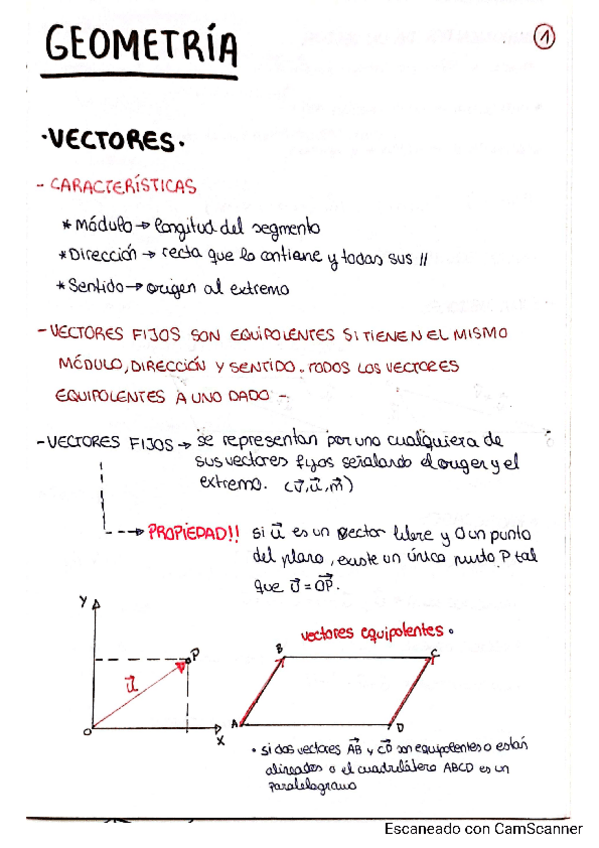 GEOMETRÍA
1
·VECTORES·
- CARACTERÍSTICAS
* Módulo → longitud del segmento
* Dirección → recta que lo contiene y todas sus //
* Sentido → origen al extremo
- VECTORES FIJOS SON EQUIPOLENTES SI TIENEN EL MISMO
MÓDULO, DIRECCIÓN Y SENTIDO. TODOS LOS VECTORES
EQUIPOLENTES A UNO DADO -
- VECTORES FIJOS → se representan por uno cualquiera de
sus vectores fijos señalando el origen y el
extremo.
PROPIEDAD!! si u⃗ es un vector libre y O un punto
del plano, existe un único punto P tal
que U⃗ = OP⃗.
vectores equipolentes.
Y
B
C
P
u⃗
A
D
O
X
· si dos vectores AB⃗ y CD⃗ son equipolentes o están
alineados o el cuadrilátero ABCD es un
paralelogramo
Escaneado con CamScanner